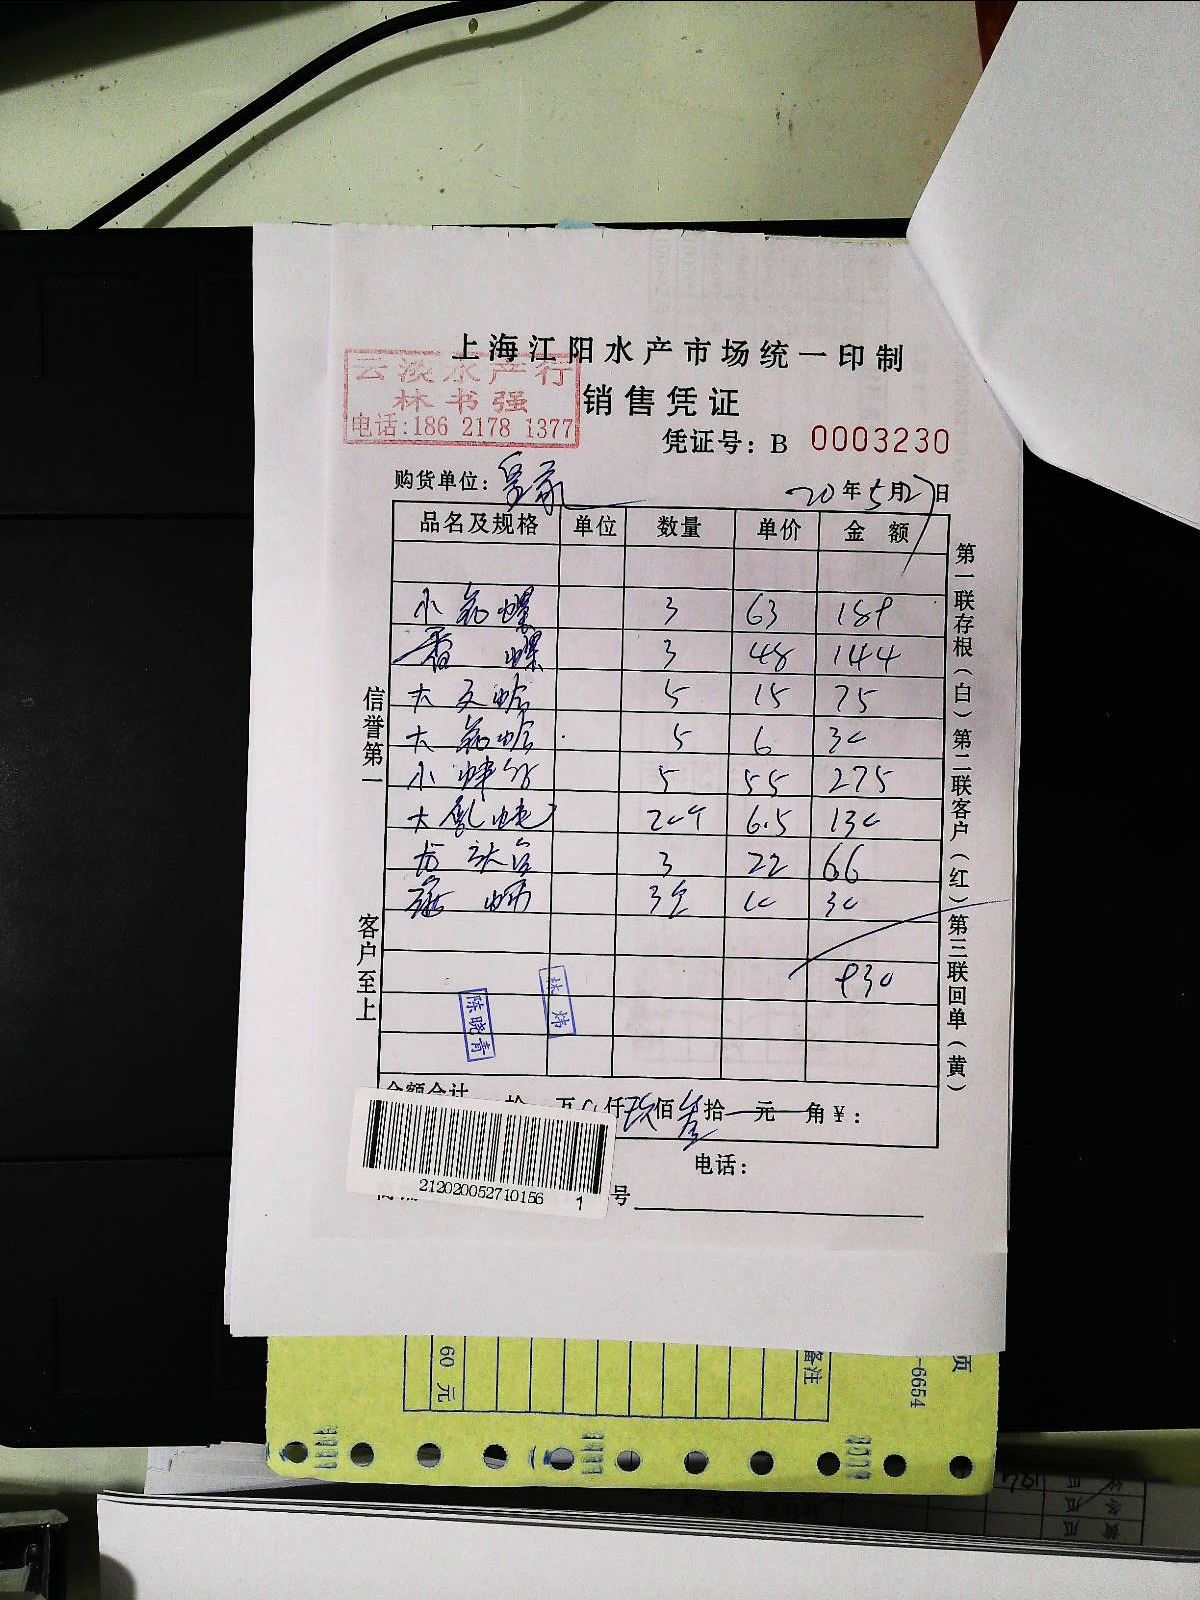 上海江阳水产市场统一印制
云淡水产行
林书强
电话:186 2178 1377
销售凭证
凭证号: B 0003230
购货单位:
20年5月27日
品名及规格 单位 数量 单价 金额
小 螺 3 63 189
香 螺 3 48 144
大文蛤 5 15 75
大 蛤 5 6 30
小 5 55 275
大 20个 6.5 130
3 22 66
3 10 30
930
陈晓青
林炜
金额合计 拾 万 仟玖佰叁拾 元 角¥:
电话:
212020052710156 1
号
信誉第一
客户至上
第一联存根(白)第二联客户(红)第三联回单(黄)
60 元
备注
页
-6654